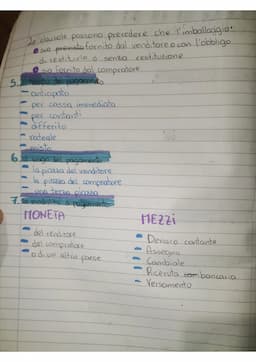 Le clausole possono prevedere che l'imballaggio:
sia prenota fornito dal venditore o con l'obbligo
di restituirlo o senza restituzione
sia fornito dal compratore
5. tempo di pagamento
anticipato
per cassa immediata
per contanti
differito
rateale
misto
6. luogo del pagamento
la piazza del venditore
la piazza del compratore
una terza piazza
7. pagamento
MONETA
del venditore
del compratore
o di un altro paese
MEZZI
Denaro contante
Assegno
Cambiale
Ricevuta bancaria
Versamento